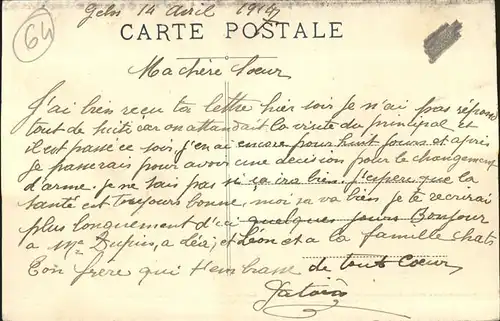 64
14 Avril 1917
CARTE POSTALE
Ma chère Soeur
J'ai bien reçu ta lettre hier soir je n'ai pas répondu
tout de suite car on attendait la visite du principal et
il est passé ce soir j'en ai encore pour huit jours et après
je passerais pour avoir une décision pour le changement
d'arme. je ne sais pas si ça ira bien. J'espère que la
santé est toujours bonne, moi ja va bien je te recrirai
plus longuement d'ici quelques jours Bonjour
a Dupin, a et Léon et a la famille
Ton frère qui t'embrasse de tout Coeur